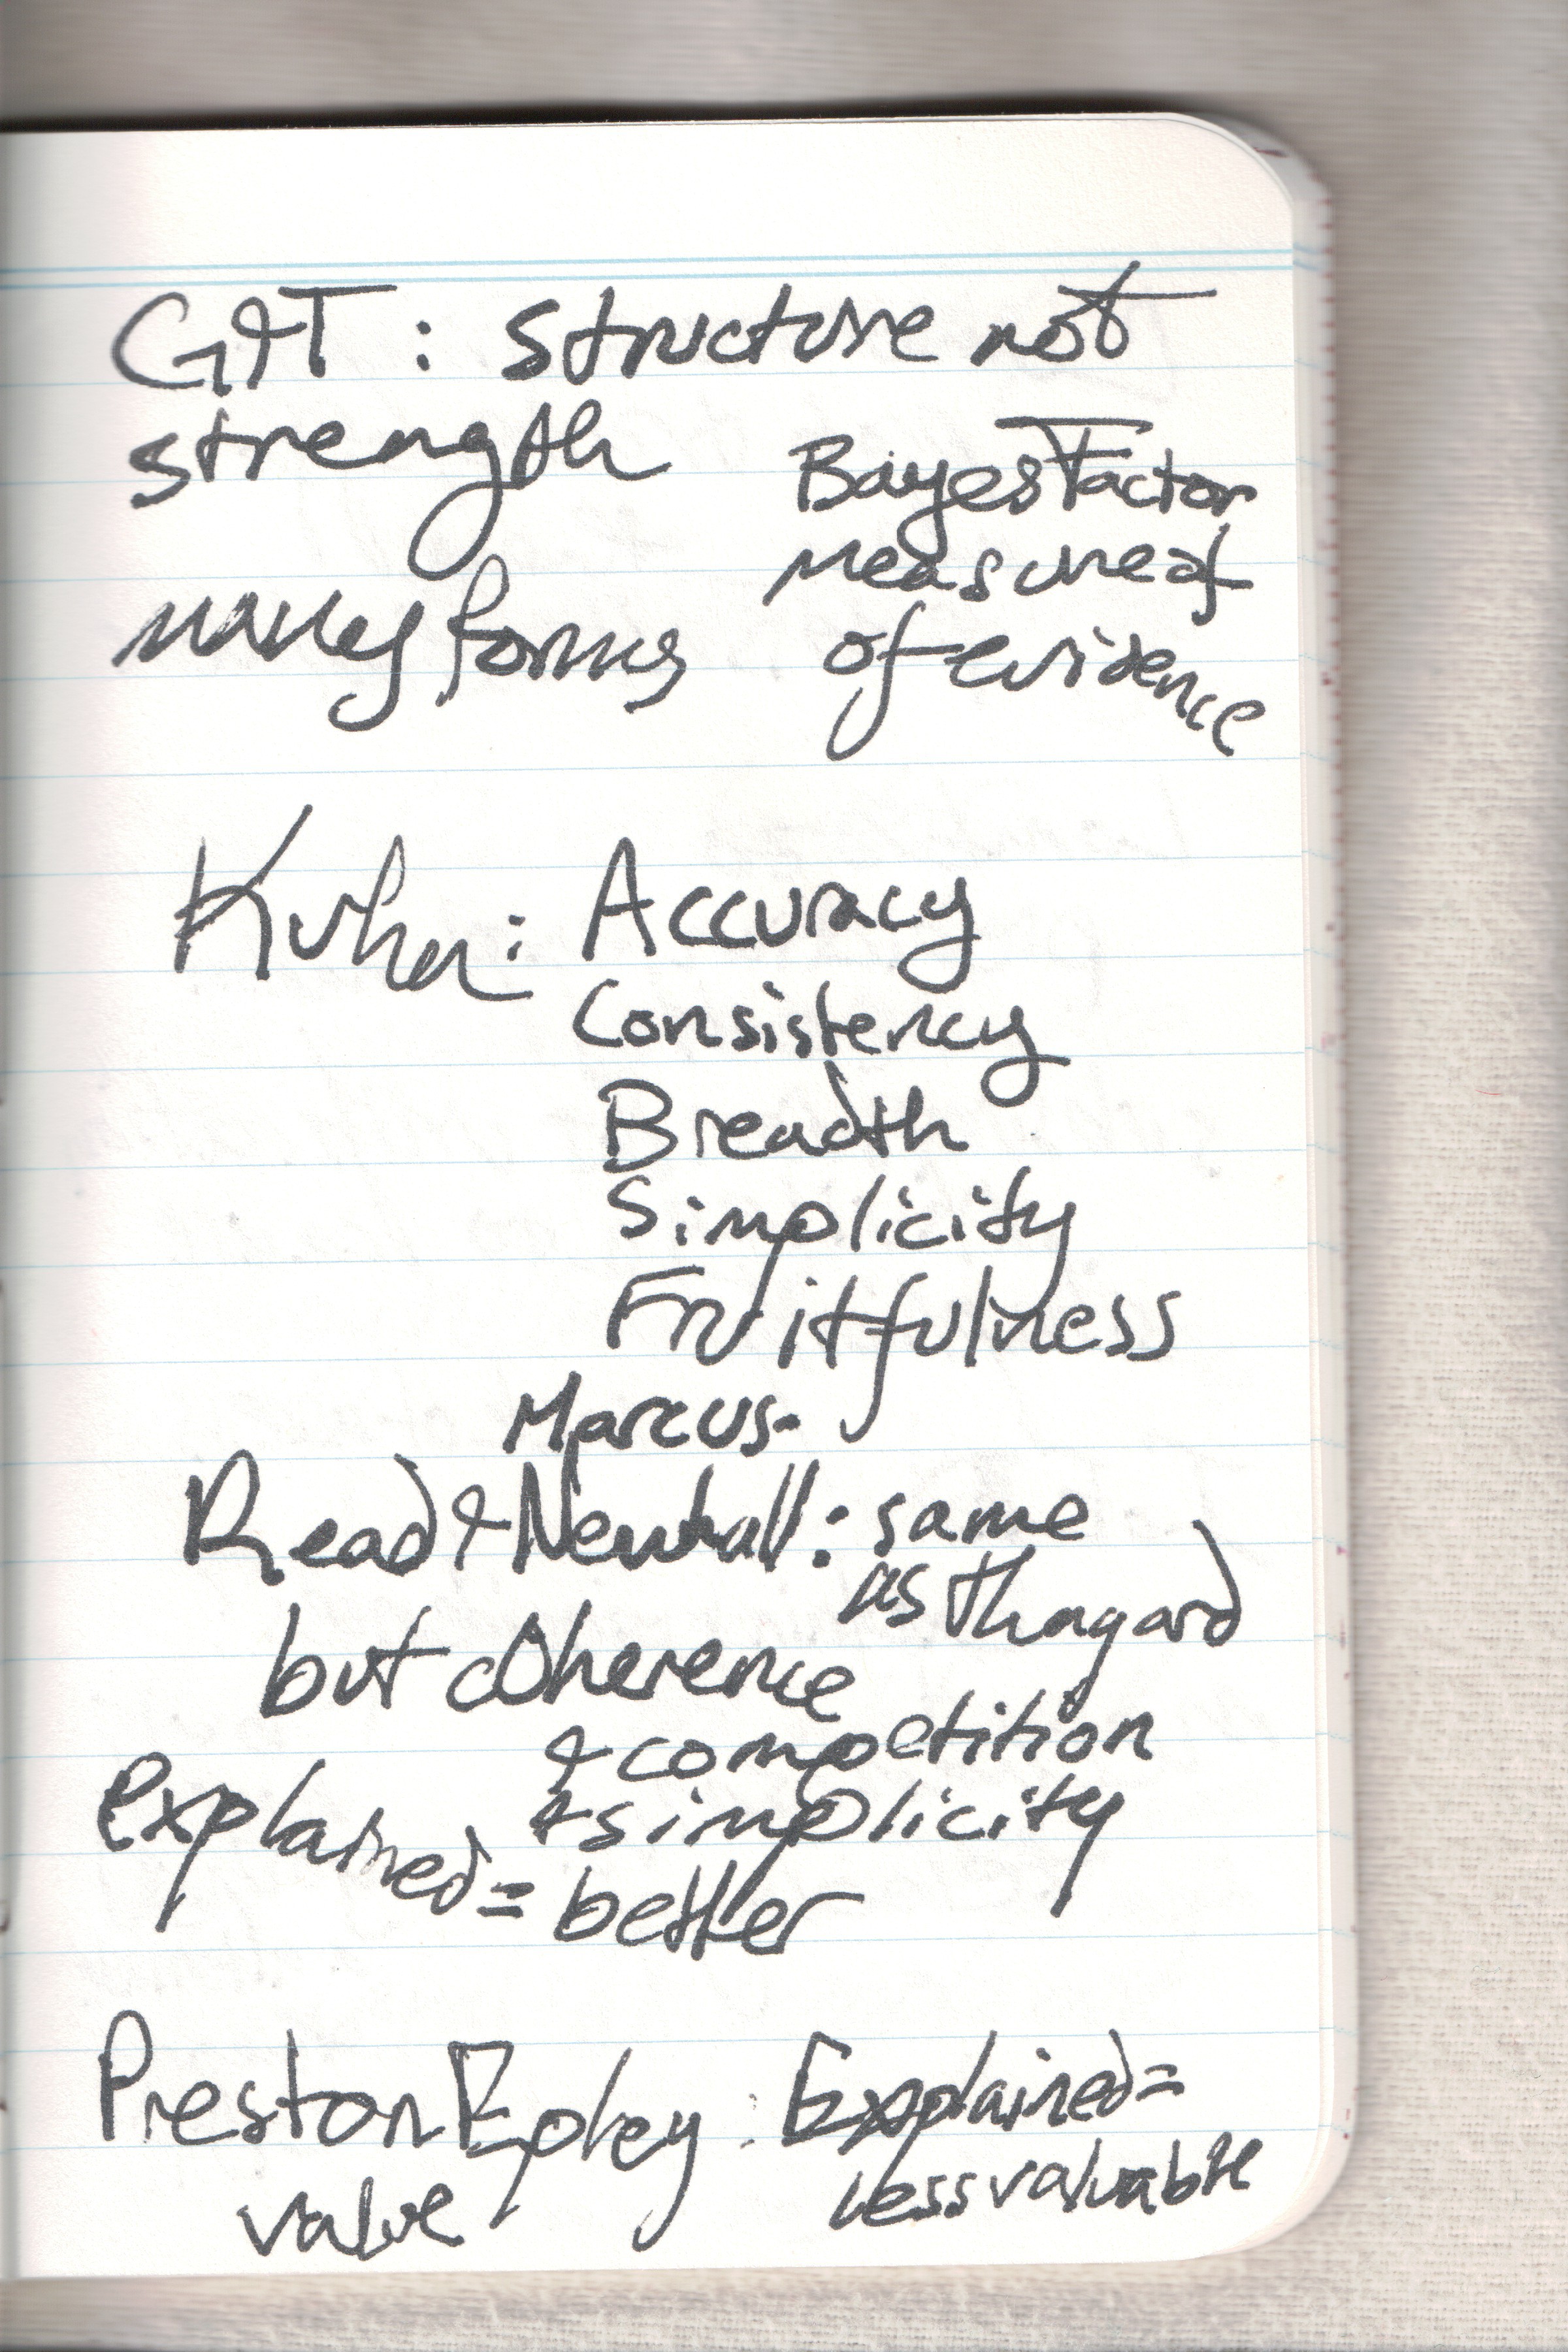 G&T: structure not
strength
Bayes Factor
measure of
of evidence
many forms
Kuhn: Accuracy
Consistency
Breadth
Simplicity
Fruitfulness
Marcus-
Read & Newhall: same
as Thagard
but coherence
& competition
& simplicity
explained = better
Preston Epley: Explained =
less valuable
value